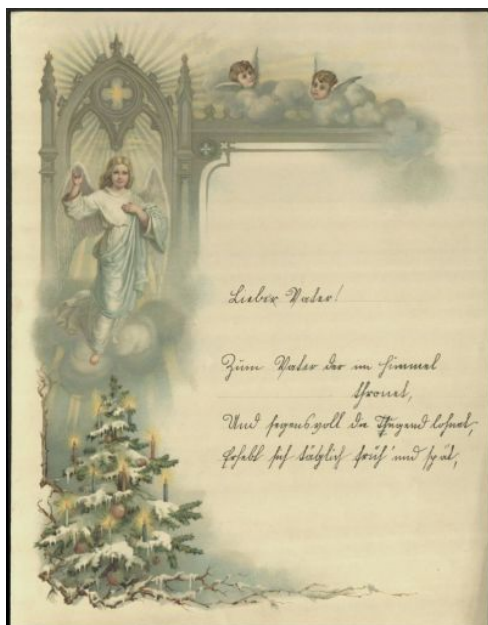 Lieber Vater!
Zum Vater der im Himmel
thronet,
Und segensvoll die Thugend lohnet,
Erhebt sich täglich früh' und spät,